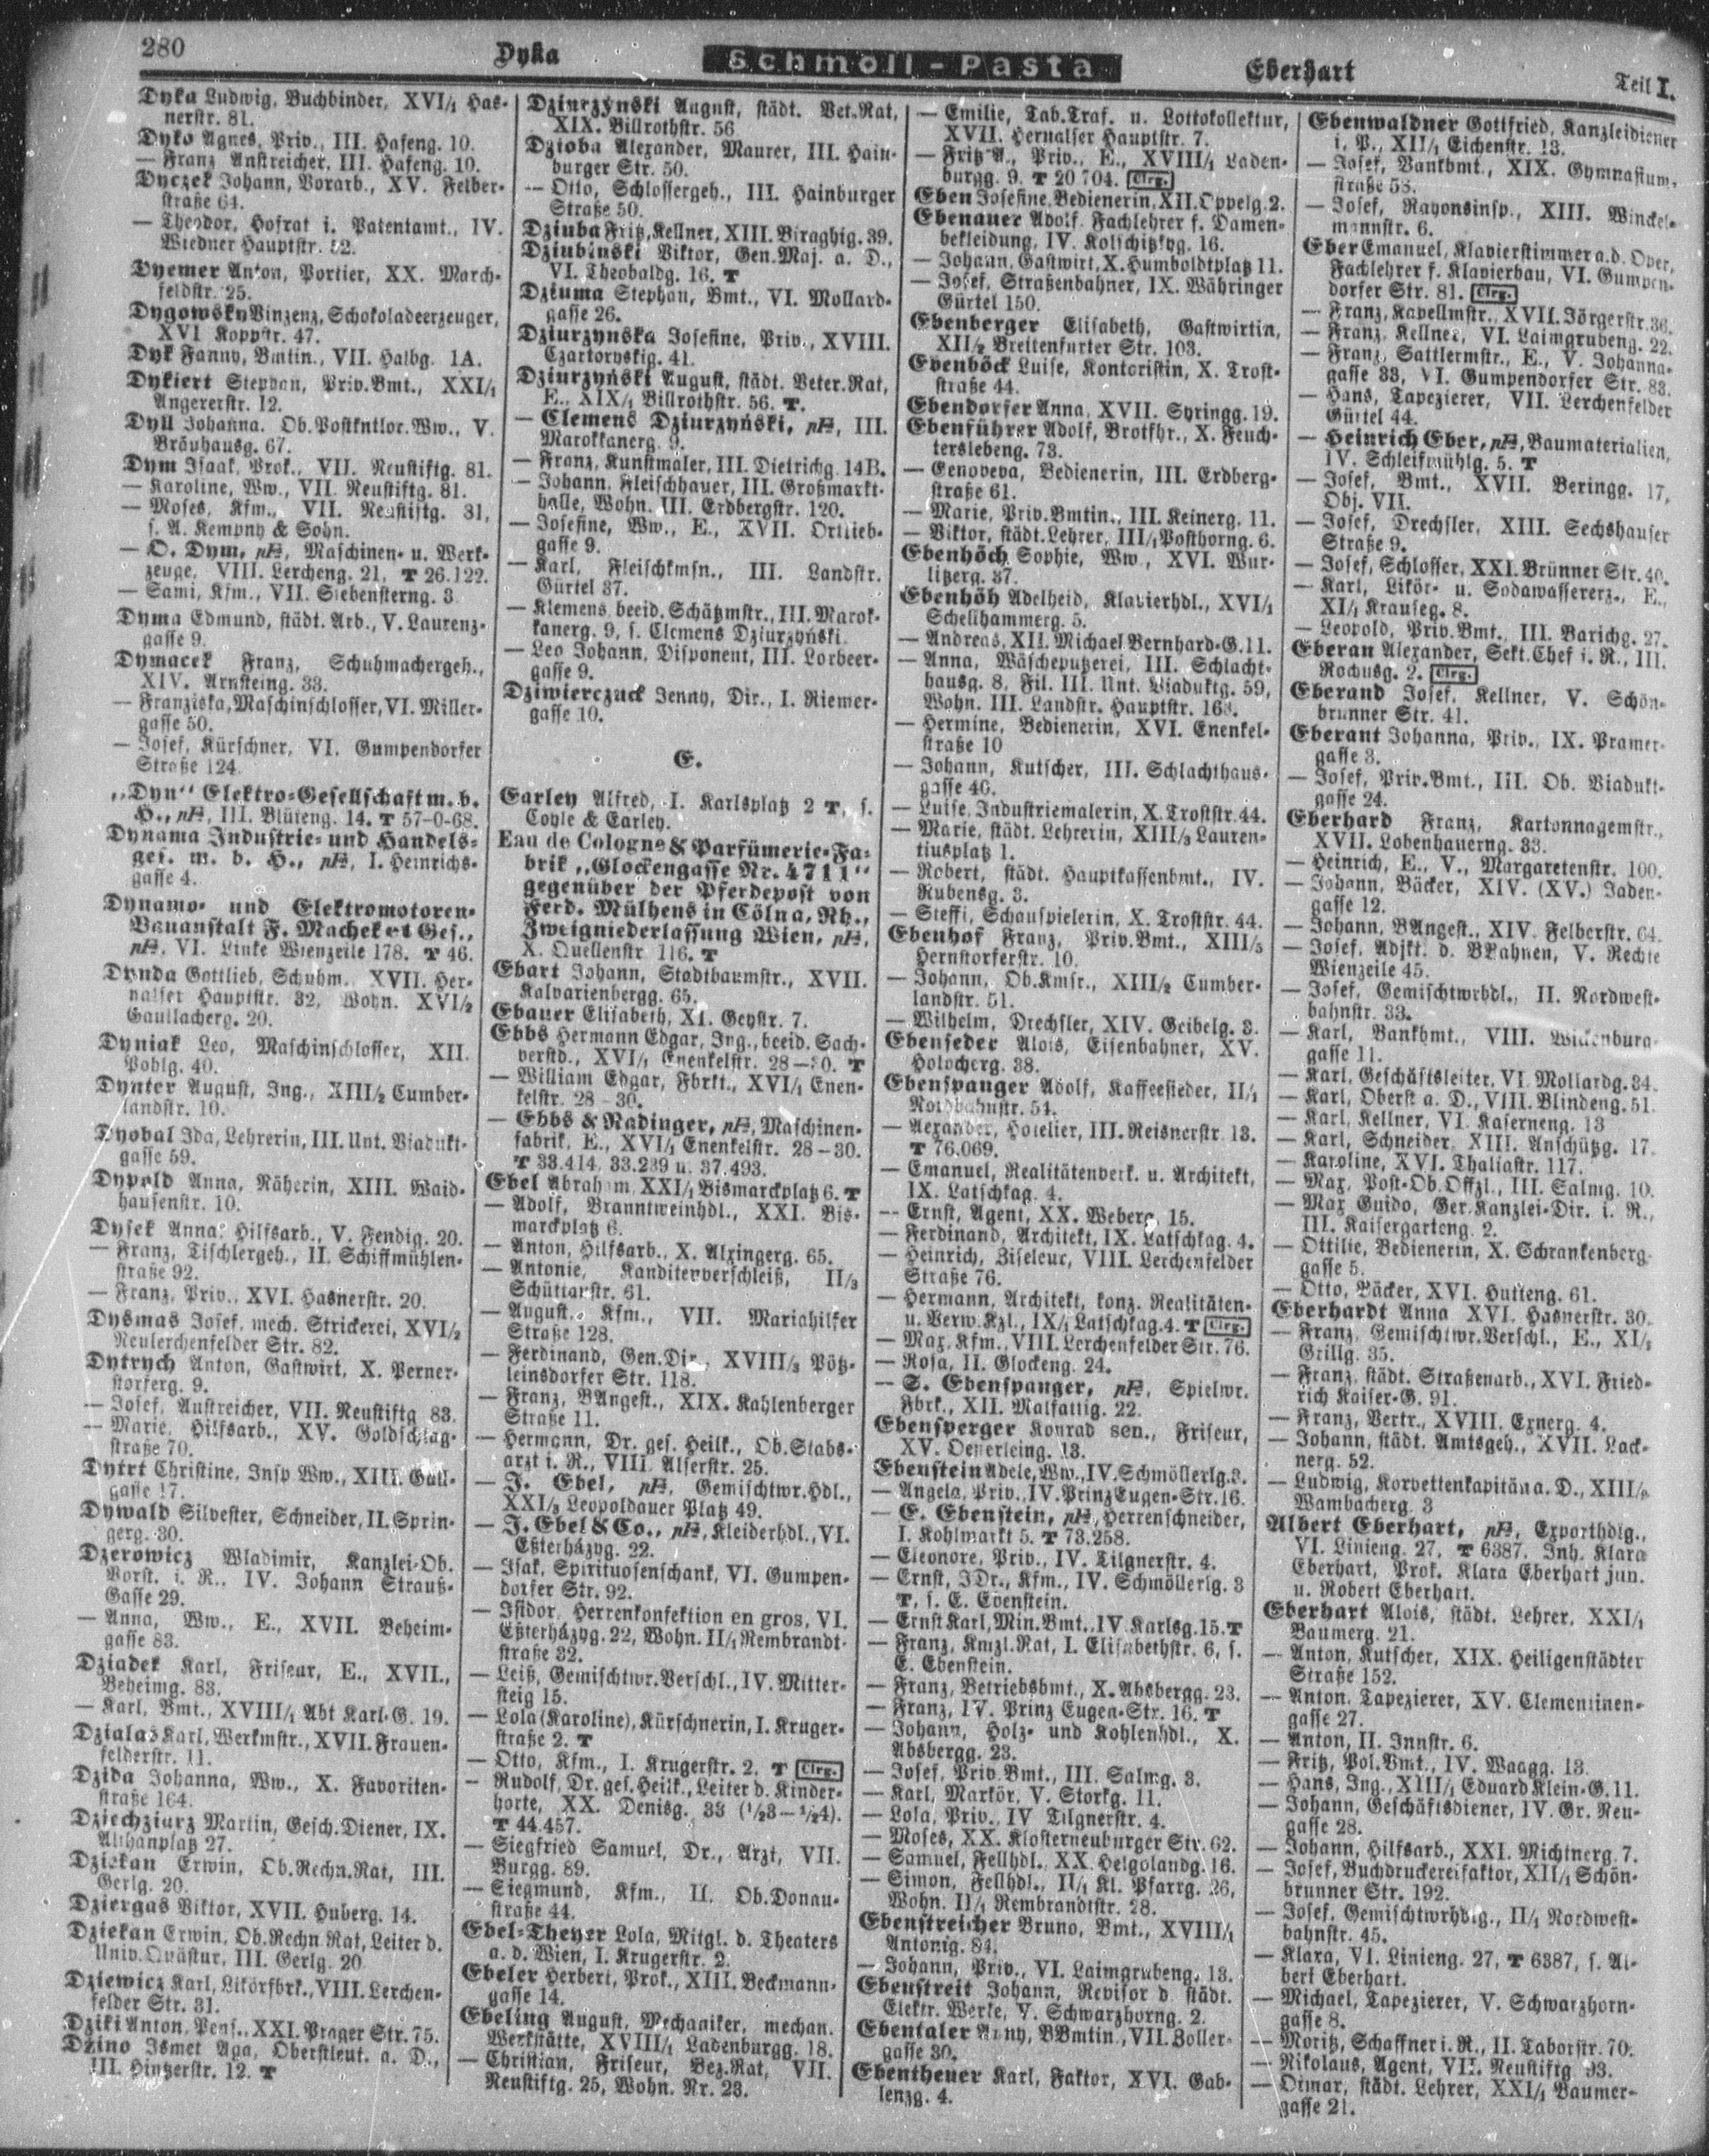 280
Dyka
Schmoll-Pasta
Eberhart
Teil I.
Dyka Ludwig, Buchbinder, XVI/1 Has-
nerstr. 81.
Dyko Agnes, Priv., III. Hafeng. 10.
— Franz Anstreicher, III. Hafeng. 10.
Dyczek Johann, Vorarb., XV. Felber-
straße 64.
— Theodor, Hofrat i. Patentamt., IV.
Wiedner Hauptstr. 52.
Dyemer Anton, Portier, XX. March-
feldstr. 25.
Dygowsky Vinzenz, Schokoladeerzeuger,
XVI Koppstr. 47.
Dyk Fanny, Bmtin., VII. Halbg. 1A.
Dykiert Stephan, Priv.Bmt., XXI/1
Angererstr. 12.
Dyll Johanna. Ob.Postkntlor.Ww., V.
Bräuhausg. 67.
Dym Isaak, Prok., VII. Neustiftg. 81.
— Karoline, Ww., VII. Neustiftg. 81.
— Moses, Kfm., VII. Neustiftg. 31,
s. A. Kempny & Sohn.
— O. Dym, pF, Maschinen- u. Werk-
zeuge, VIII. Lercheng. 21, T 26.122.
— Sami, Kfm., VII. Siebensterng. 3
Dyma Edmund, städt. Arb., V. Laurenz-
gasse 9.
Dymacek Franz, Schuhmachergeh.,
XIV. Arnsteing. 33.
— Franziska, Maschinschlosser, VI. Miller-
gasse 50.
— Josef, Kürschner, VI. Gumpendorfer
Straße 124
„Dyn“ Elektro-Gesellschaft m. b.
H., pF, III. Blüteng. 14. T 57-0-68.
Dynama Industrie- und Handels-
ges. m. b. H., pF, I. Heinrichs-
gasse 4.
Dynamo- und Elektromotoren-
Bauanstalt F. Machek et Ges.,
pF, VI. Linke Wienzeile 178. T 46.
Dynda Gottlieb, Schuhm., XVII. Her-
nalser Hauptstr. 32, Wohn. XVI/2
Gaullacherg. 20.
Dyniak Leo, Maschinschlosser, XII.
Pohlg. 40.
Dynter August, Ing., XIII/2 Cumber-
landstr. 10.
Dyobal Ida, Lehrerin, III. Unt. Viadukt-
gasse 59.
Dypold Anna, Näherin, XIII. Waid-
hausenstr. 10.
Dysek Anna, Hilfsarb., V. Fendig. 20.
— Franz, Tischlergeh., II. Schiffmühlen-
straße 92.
— Franz, Priv., XVI. Hasnerstr. 20.
Dysmas Josef, mech. Strickerei, XVI/2
Neulerchenfelder Str. 82.
Dytrych Anton, Gastwirt, X. Perner-
storferg. 9.
— Josef, Anstreicher, VII. Neustiftg 83.
— Marie, Hilfsarb., XV. Goldschlag-
straße 70.
Dytrt Christine, Insp.Ww., XIII. Gall-
gasse 17.
Dywald Silvester, Schneider, II. Sprin-
gerg. 30.
Dzerowicz Wladimir, Kanzlei-Ob.
Vorst. i. R., IV. Johann Strauß-
Gasse 29.
— Anna, Ww., E., XVII. Beheim-
gasse 83.
Dziadek Karl, Friseur, E., XVII.,
Beheimg. 83.
— Karl, Bmt., XVIII/1 Abt Karl-G. 19.
Dzialas Karl, Werkmstr., XVII. Frauen-
felderstr. 11.
Dzida Johanna, Ww., X. Favoriten-
straße 164.
Dziechziarz Martin, Gesch.Diener, IX.
Althanplatz 27.
Dziekan Erwin, Ob.Rechn.Rat, III.
Gerlg. 20.
Dziergas Viktor, XVII. Huberg. 14.
Dziekan Erwin, Ob.Rechn.Rat, Leiter d.
Univ.Quästur, III. Gerlg. 20
Dziewicz Karl, Likörfbrk., VIII. Lerchen-
felder Str. 31.
Dziki Anton, Pens., XXI. Prager Str. 75.
Dzino Ismet Aga, Oberstleut. a. D.,
III. Hintzerstr. 12. T
Dziurzynski August, städt. Vet.Rat,
XIX. Billrothstr. 56
Dzioba Alexander, Maurer, III. Hain-
burger Str. 50.
— Otto, Schlossergeh., III. Hainburger
Straße 50.
Dziuba Fritz, Kellner, XIII. Biraghig. 39.
Dziubinski Viktor, Gen.Maj. a. D.,
VI. Theobaldg. 16. T
Dziuma Stephan, Bmt., VI. Mollard-
gasse 26.
Dziurzynska Josefine, Priv., XVIII.
Czartoryskig. 41.
Dziurzyński August, städt. Veter.Rat,
E., XIX/1 Billrothstr. 56. T.
— Clemens Dziurzyński, pF, III.
Marokkanerg. 9.
— Franz, Kunstmaler, III. Dietrichg. 14B.
— Johann, Fleischhauer, III. Großmarkt-
halle, Wohn. III. Erdbergstr. 120.
— Josefine, Ww., E., XVII. Ortlieb-
gasse 9.
— Karl, Fleischkmsn., III. Landstr.
Gürtel 37.
— Klemens, beeid. Schätzmstr., III. Marok-
kanerg. 9, s. Clemens Dziurzyński.
— Leo Johann, Disponent, III. Lorbeer-
gasse 9.
Dziwierczuck Jenny, Dir., I. Riemer-
gasse 10.
E.
Earley Alfred, I. Karlsplatz 2 T, s.
Coyle & Earley.
Eau de Cologne & Parfümerie-Fa-
brik „Glockengasse Nr. 4711“
gegenüber der Pferdepost von
Ferd. Mülhens in Cöln a. Rh.,
Zweigniederlassung Wien, pF,
X. Quellenstr 116. T
Ebart Johann, Stadtbaumstr., XVII.
Kalvarienbergg. 65.
Ebauer Elisabeth, XI. Geystr. 7.
Ebbs Hermann Edgar, Ing., beeid. Sach-
verstd., XVI/1 Enenkelstr. 28—30. T
— William Edgar, Fbrkt., XVI/1 Enen-
kelstr. 28-30.
— Ebbs & Radinger, pF, Maschinen-
fabrik, E., XVI/1 Enenkelstr. 28—30.
T 33.414, 33.239 u. 37.493.
Ebel Abraham, XXI/1 Bismarckplatz 6. T
— Adolf, Branntweinhdl., XXI. Bis-
marckplatz 6.
— Anton, Hilfsarb., X. Alxingerg. 65.
— Antonie, Kanditenverschleiß, II/3
Schüttaustr. 61.
— August, Kfm., VII. Mariahilfer
Straße 128.
— Ferdinand, Gen.Dir., XVIII/3 Pötz-
leinsdorfer Str. 118.
— Franz, BAngest., XIX. Kahlenberger
Straße 11.
— Hermann, Dr. ges. Heilk., Ob.Stabs-
arzt i. R., VIII. Alserstr. 25.
— J. Ebel, pF, Gemischtwr.Hdl.,
XXI/3 Leopoldauer Platz 49.
— J. Ebel & Co., pF, Kleiderhdl., VI.
Eßterházyg. 22.
— Isak, Spirituosenschank, VI. Gumpen-
dorfer Str. 92.
— Isidor, Herrenkonfektion en gros, VI.
Eßterházyg. 22, Wohn. II/1 Rembrandt-
straße 32.
— Leiß, Gemischtwr.Verschl., IV. Mitter-
steig 15.
— Lola (Karoline), Kürschnerin, I. Kruger-
straße 2. T
— Otto, Kfm., I. Krugerstr. 2. T Clrg.
— Rudolf, Dr. ges. Heilk., Leiter d. Kinder-
horte, XX. Denisg. 33 (1/23—1/24).
T 44.457.
— Siegfried Samuel, Dr., Arzt, VII.
Burgg. 89.
— Siegmund, Kfm., II. Ob.Donau-
straße 44.
Ebel-Theyer Lola, Mitgl. d. Theaters
a. d. Wien, I. Krugerstr. 2.
Ebeler Herbert, Prok., XIII. Beckmann-
gasse 14.
Ebeling August, Mechaniker, mechan.
Werkstätte, XVIII/1 Ladenburgg. 18.
— Christian, Friseur, Bez.Rat, VII.
Neustiftg. 25, Wohn. Nr. 23.
— Emilie, Tab.Traf. u. Lottokollektur,
XVII. Hernalser Hauptstr. 7.
— Fritz A., Priv., E., XVIII/1 Laden-
burgg. 9. T 20704. Clrg.
Eben Josefine, Bedienerin, XII. Oppelg. 2.
Ebenauer Adolf, Fachlehrer f. Damen-
bekleidung, IV. Kolschitzkyg. 16.
— Johann, Gastwirt, X. Humboldtplatz 11.
— Josef, Straßenbahner, IX. Währinger
Gürtel 150.
Ebenberger Elisabeth, Gastwirtin,
XII/2 Breitenfurter Str. 103.
Ebenböck Luise, Kontoristin, X. Trost-
straße 44.
Ebendorfer Anna, XVII. Syringg. 19.
Ebenführer Adolf, Brotfhr., X. Feuch-
terslebeng. 73.
— Genoveva, Bedienerin, III. Erdberg-
straße 61.
— Marie, Priv.Bmtin., III. Keinerg. 11.
— Viktor, städt.Lehrer, III/1 Posthorng. 6.
Ebenhöch Sophie, Ww, XVI. Wur-
litzerg. 37.
Ebenhöh Adelheid, Klavierhdl., XVI/1
Schellhammerg. 5.
— Andreas, XII. Michael Bernhard-G. 11.
— Anna, Wäscheputzerei, III. Schlacht-
hausg. 8, Fil. III. Unt. Viaduktg. 59,
Wohn. III. Landstr. Hauptstr. 168.
— Hermine, Bedienerin, XVI. Enenkel-
straße 10
— Johann, Kutscher, III. Schlachthaus-
gasse 40.
— Luise, Industriemalerin, X. Troststr. 44.
— Marie, städt. Lehrerin, XIII/3 Lauren-
tiusplatz 1.
— Robert, städt. Hauptkassenbmt., IV.
Rubensg. 3.
— Steffi, Schauspielerin, X. Troststr. 44.
Ebenhof Franz, Priv.Bmt., XIII/5
Hernstorferstr. 10.
— Johann, Ob.Kmsr., XIII/2 Cumber-
landstr. 51.
— Wilhelm, Drechsler, XIV. Geibelg. 3.
Ebenseder Alois, Eisenbahner, XV.
Holocherg. 38.
Ebenspanger Adolf, Kaffeesieder, II/1
Nordbahnstr. 54.
— Alexander, Hotelier, III. Reisnerstr 13.
T 76.069.
— Emanuel, Realitätenverk. u. Architekt,
IX. Latschkag. 4.
— Ernst, Agent, XX. Weberg. 15.
— Ferdinand, Architekt, IX. Latschkag. 4.
— Heinrich, Ziseleur, VIII. Lerchenfelder
Straße 76.
— Hermann, Architekt, konz. Realitäten-
u. Verw.Kzl., IX/1 Latschkag. 4. T Clrg.
— Max, Kfm., VIII. Lerchenfelder Str. 76.
— Rosa, II. Glockeng. 24.
— S. Ebenspanger, pF, Spielwr.
Fbrk., XII. Malfattig. 22.
Ebensperger Konrad sen., Friseur,
XV. Oeverleing. 13.
Ebenstein Adele, Ww., IV. Schmöllerlg. 3.
— Angela, Priv., IV. Prinz Eugen-Str. 16.
— E. Ebenstein, pF, Herrenschneider,
I. Kohlmarkt 5. T 73.258.
— Eleonore, Priv., IV. Tilgnerstr. 4.
— Ernst, JDr., Kfm., IV. Schmöllerlg. 3
T, s. E. Ebenstein.
— Ernst Karl, Min.Bmt., IV. Karlsg. 15. T
— Franz, Kmzl.Rat, I. Elisabethstr. 6, s.
E. Ebenstein.
— Franz, Betriebsbmt., X. Absbergg. 23.
— Franz, IV. Prinz Eugen-Str. 16. T
— Johann, Holz- und Kohlenhdl., X.
Absbergg. 23.
— Josef, Priv.Bmt., III. Salmg. 3.
— Karl, Markör, V. Storkg. 11.
— Lola, Priv., IV Tilgnerstr. 4.
— Moses, XX. Klosterneuburger Str. 62.
— Samuel, Fellhdl., XX. Helgolandg. 16.
— Simon, Fellhdl., II/1 Kl. Pfarrg. 26,
Wohn. II/1 Rembrandtstr. 28.
Ebenstreicher Bruno, Bmt., XVIII/1
Antonig. 84.
— Johann, Priv., VI. Laimgrubeng. 13.
Ebenstreit Johann, Revisor d. städt.
Elektr. Werke, V. Schwarzhorng. 2.
Ebentaler Anny, BBmtin., VII. Zoller-
gasse 30.
Ebentheuer Karl, Faktor, XVI. Gab-
lenzg. 4.
Ebenwaldner Gottfried, Kanzleidiener
i. P., XII/1 Eichenstr. 13.
— Josef, Bankbmt., XIX. Gymnasium-
straße 58.
— Josef, Rayonsinsp., XIII. Winckel-
mannstr. 6.
Eber Emanuel, Klavierstimmer a. d. Oper,
Fachlehrer f. Klavierbau, VI. Gumpen-
dorfer Str. 81. Clrg.
— Franz, Kapellmstr., XVII. Jörgerstr. 36.
— Franz, Kellner, VI. Laimgrubeng. 22.
— Franz, Sattlermstr., E., V. Johanna-
gasse 33, VI. Gumpendorfer Str. 83.
— Hans, Tapezierer, VII. Lerchenfelder
Gürtel 44.
— Heinrich Eber, pF, Baumaterialien,
IV. Schleifmühlg. 5. T
— Josef, Bmt., XVII. Beringg. 17,
Obj. VII.
— Josef, Drechsler, XIII. Sechshauser
Straße 9.
— Josef, Schlosser, XXI. Brünner Str. 40.
— Karl, Likör- u. Sodawassererz., E.,
XI/1 Krauseg. 8.
— Leopold, Priv.Bmt., III. Barichg. 27.
Eberan Alexander, Sekt.Chef i. R., III.
Rochusg. 2. Clrg.
Eberand Josef, Kellner, V. Schön-
brunner Str. 41.
Eberant Johanna, Priv., IX. Pramer-
gasse 3.
— Josef, Priv.Bmt., III. Ob. Viadukt-
gasse 24.
Eberhard Franz, Kartonnagemstr.,
XVII. Lobenhauerng. 33.
— Heinrich, E., V., Margaretenstr. 100.
— Johann, Bäcker, XIV. (XV.) Jaden-
gasse 12.
— Johann, BAngest., XIV. Felberstr. 64.
— Josef, Adjkt. d. BBahnen, V. Rechte
Wienzeile 45.
— Josef, Gemischtwrhdl., II. Nordwest-
bahnstr. 33.
— Karl, Bankbmt., VIII. Wickenburg-
gasse 11.
— Karl, Geschäftsleiter, VI. Mollardg. 34.
— Karl, Oberst a. D., VIII. Blindeng. 51.
— Karl, Kellner, VI. Kaserneng. 13
— Karl, Schneider, XIII. Anschützg. 17.
— Karoline, XVI. Thaliastr. 117.
— Max, Post-Ob.Offzl., III. Salmg. 10.
— Max Guido, Ger.Kanzlei-Dir. i. R.,
III. Kaisergarteng. 2.
— Ottilie, Bedienerin, X. Schrankenberg-
gasse 5.
— Otto, Bäcker, XVI. Hutteng. 61.
Eberhardt Anna XVI. Hasnerstr. 30.
— Franz, Gemischtwr.Verschl., E., XI/3
Grillg. 35.
— Franz, städt. Straßenarb., XVI. Fried-
rich Kaiser-G. 91.
— Franz, Vertr., XVIII. Exnerg. 4.
— Johann, städt. Amtsgeh., XVII. Lack-
nerg. 52.
— Ludwig, Korvettenkapitän a. D., XIII/9
Wambacherg. 3
Albert Eberhart, pF, Exporthdlg.,
VI. Linieng. 27, T 6387. Inh. Klara
Eberhart, Prok. Klara Eberhart jun.
u. Robert Eberhart.
Eberhart Alois, städt. Lehrer, XXI/1
Baumerg. 21.
— Anton, Kutscher, XIX. Heiligenstädter
Straße 152.
— Anton, Tapezierer, XV. Clementinen-
gasse 27.
— Anton, II. Innstr. 6.
— Fritz, Pol.Bmt., IV. Waagg. 13.
— Hans, Ing., XIII/1 Eduard Klein-G. 11.
— Johann, Geschäftsdiener, IV. Gr. Neu-
gasse 28.
— Johann, Hilfsarb., XXI. Michtnerg. 7.
— Josef, Buchdruckereifaktor, XII/1 Schön-
brunner Str. 192.
— Josef, Gemischtwrhdlg., II/1 Nordwest-
bahnstr. 45.
— Klara, VI. Linieng. 27, T 6387, s. Al-
bert Eberhart.
— Michael, Tapezierer, V. Schwarzhorn-
gasse 8.
— Moritz, Schaffner i. R., II. Taborstr. 70.
— Nikolaus, Agent, VII. Neustiftg 93.
— Otmar, städt. Lehrer, XXI/1 Baumer-
gasse 21.